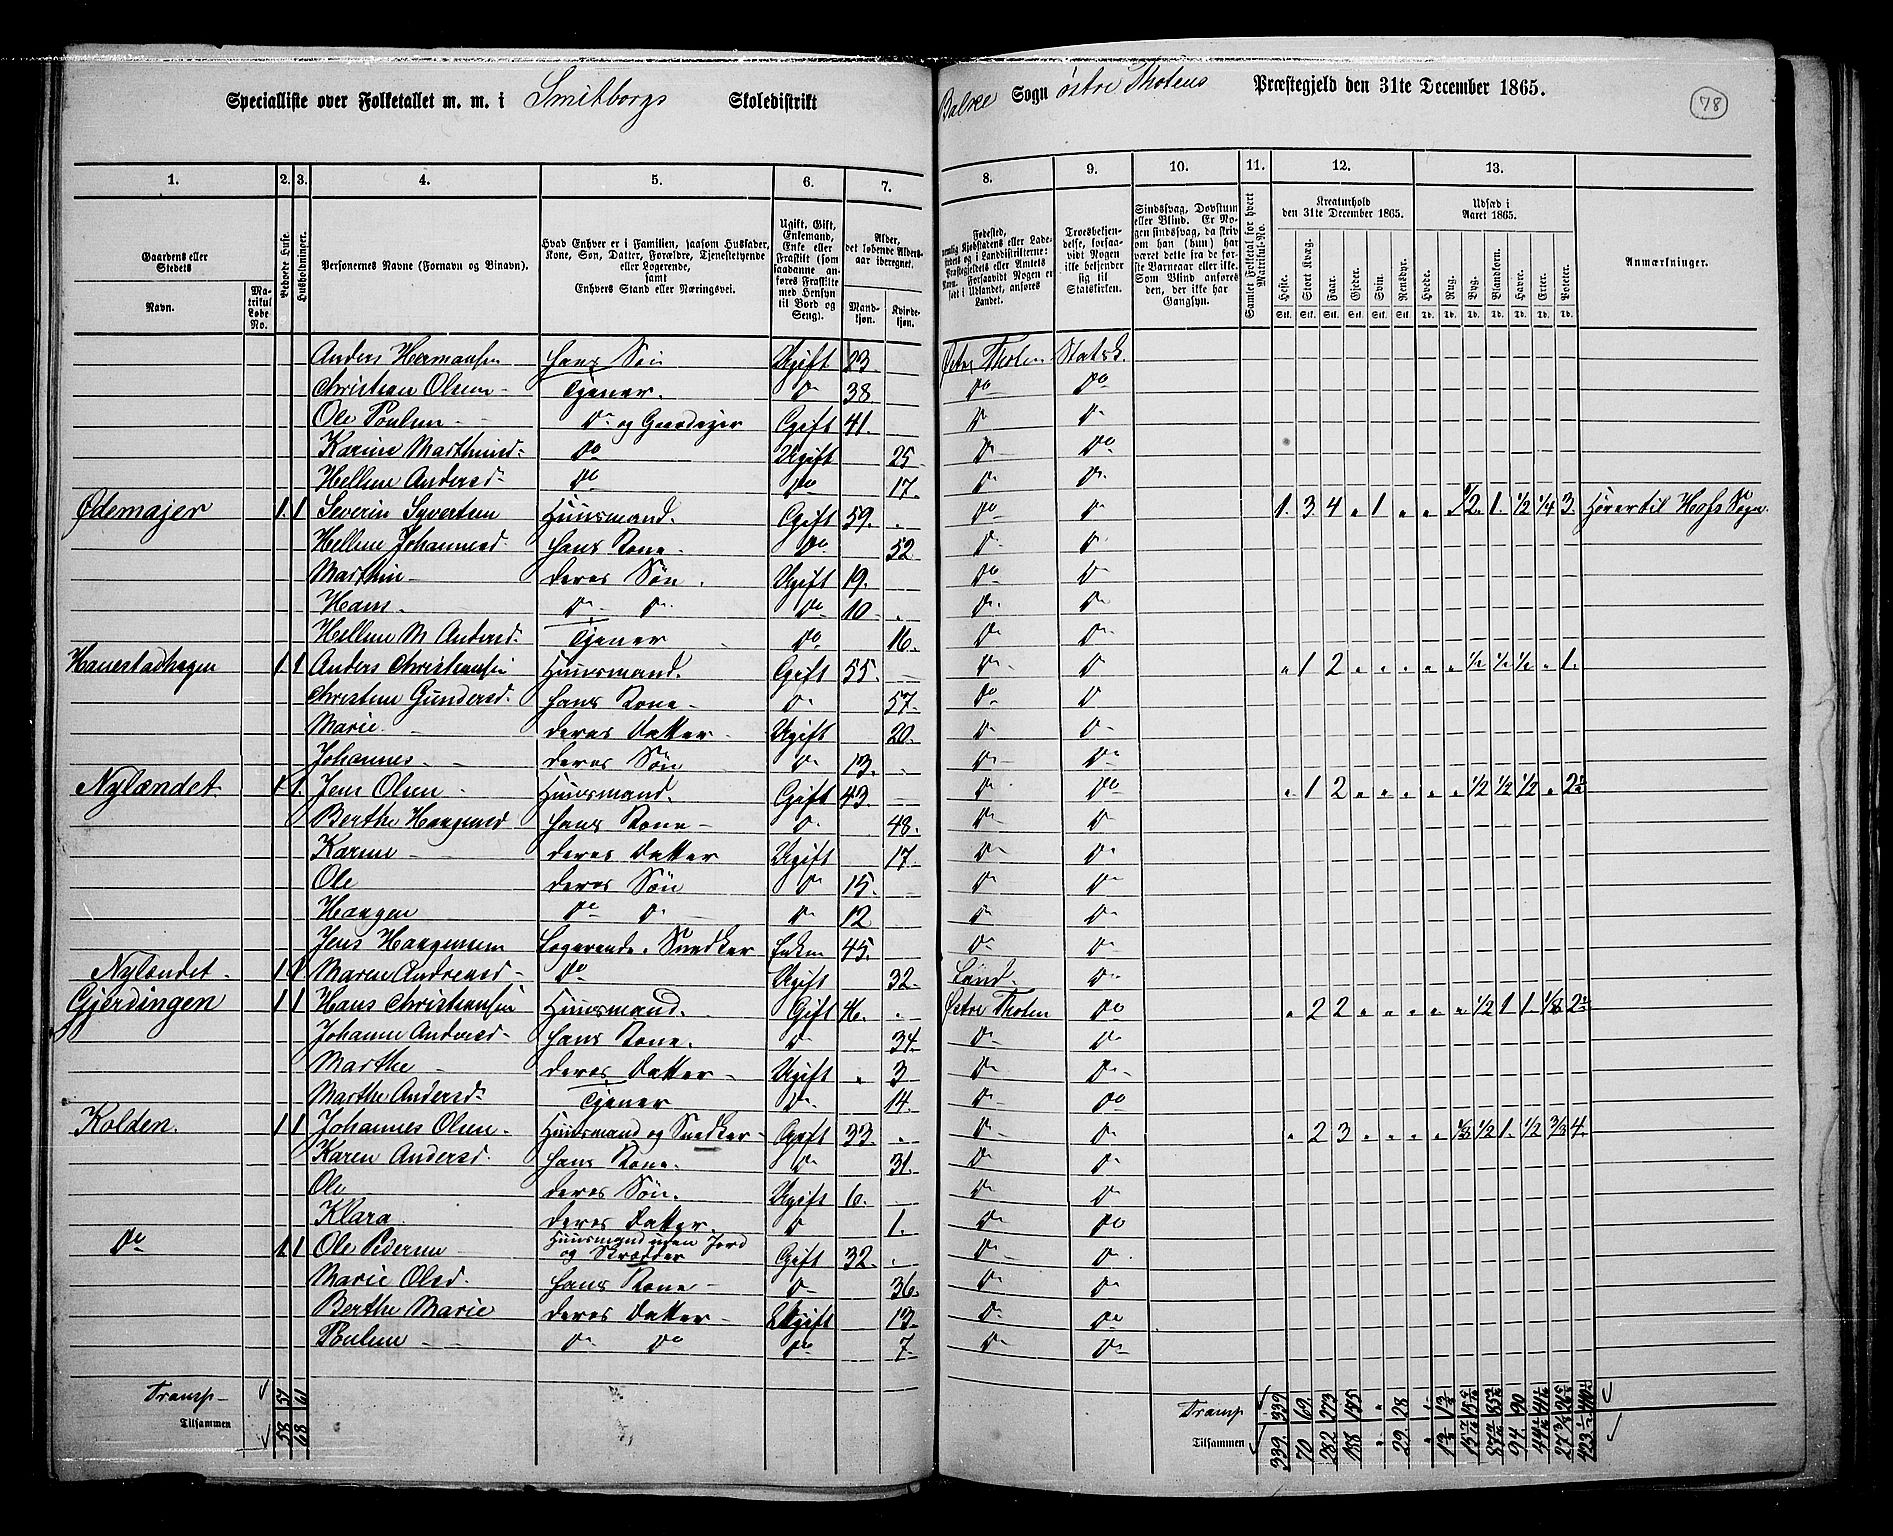 Specialliste over Folketallet m. m. i Smitborgs Skoledistrikt Balke Sogn Østre Thotens Præstegjeld den 31te December 1865. 78
1. 2. 3. 4. 5. 6. 7. 8. 9. 10. 11. 12. 13.
Gaardens eller Stedets
Navn.
Matrikul Løbe No.
Beboede Huse.
Husholdninger.
Personernes Navne (Fornavn og Binavn).
Hvad Enhver er i Familien, saasom Husfader, Kone, Søn, Datter, Forældre, Tjenestetyende eller Logerende, samt Enhvers Stand eller Næringsvei.
Ugift, Gift, Enkemand, Enke eller Fraskilt (som saadanne anføres Fraskilte med Hensyn til Bord og Seng).
Alder, det løbende Aldersaar iberegnet.
Mandkjøn. Kvindekjøn.
Fødested,
Troesbekjendelse, forsaavidt Nogen ikke bekjender sig til Statskirken.
Sindssvag, Døvstum eller Blind. Er Nogen sindssvag, da skriv om han (hun) har været dette fra de første Barneaar eller ikke. Som Blind anføres den, der ikke har Gangsyn.
Samlet Folketal for hvert Matrikul-No.
Kreaturhold den 31te December 1865.
Heste. Stort Kvæg. Faar. Gjeder. Svin. Rensdyr.
Udsæd i Aaret 1865.
Hvede. Rug. Byg. Blandkorn. Havre. Erter. Poteter.
Anmærkninger.
Anders Hermansen hans Søn Ugift 23 Østre Thoten Statsk.
Christian Olsen Tjener. Do 38 Do Do
Ole Poulsen Do og Gaardejer Gift 41. Do Do
Karine Marthinsd. Do Ugift 25 Do Do
Helline Andersd. Do Do 17. Do Do
Ødemajer 1. 1 Severin Syvertsen Huusmand. Gift 59. Do Do 1. 3 4 „ 1 „ „ „ 1/2 1. 1/2 1/4 3. Hører til Hofs Sogn.
Helline Johannesd. hans Kone. Do 52 Do Do
Marthin deres Søn. Ugift 19. Do Do
Hans. Do Do Do 10 Do Do
Helline M Andersd. Tjener Do 16. Do Do
Haverstadhagen 1. 1 Anders Christiansen Huusmand. Gift 55. Do Do „ 1 2 „ „ „ „ „ 1/2 1/2 1/2 „ 1.
Christine Gundersd. hans Kone Do 57. Do Do
Marie deres Datter Ugift 20. Do Do
Johannes deres Søn Do 13. Do Do
Nylændet 1. 1. Jens Olsen Huusmand. Gift 43. Do Do „ 1 2 „ „ „ „ „ 1/2 1/2 1/2 „ 2
Berthe Haagensd hans Kone Do 48. Do Do
Karine deres Datter Ugift 17. Do Do
Ole deres Søn Do 15. Do Do
Haagen Do Do Do 12 Do Do
Jens Haagensen Logerende. Snedker Enkm 45. Do Do
Nylændet 1 1 Maren Andreasd. Do Ugift 32. Land. Do
Gjerdingen 1 1 Hans Christiansen Huusmand. Gift 46. Østre Thoten Do „ 2 2 „ „ „ „ „ 1/2 1 1. 1/8 2
Johanne Andersd. hans Kone. Do 34. Do Do
Marthe deres Datter Ugift „ 3 Do Do
Marthe Andersd. Tjener Do 14. Do Do
Kolden. 1 1 Johannes Olsen. Huusmand og Snedker Gift 33. Do Do „ 2 3 „ „ „ „ 1/8 1/2 1. 1/2 3/8 4.
Karen Andersd. hans Kone. Do 31. Do Do
Ole deres Søn. Ugift 6. Do Do
Klara deres Datter. Do 1. Do Do
Do 1 Ole Pedersen Huusmand uden Jord og Skrædder Gift 32. Do Do
Marie Olsd. hans Kone Do 36. Do Do
Berthe Marie deres Datter Ugift 13. Do Do
Pouline Do Do Do 7 Do Do
Transp 57 61 Transp 339 69 273 145 „ 28
Tilsammen 58 68 Tilsammen 339. 70 282 188 „ 29